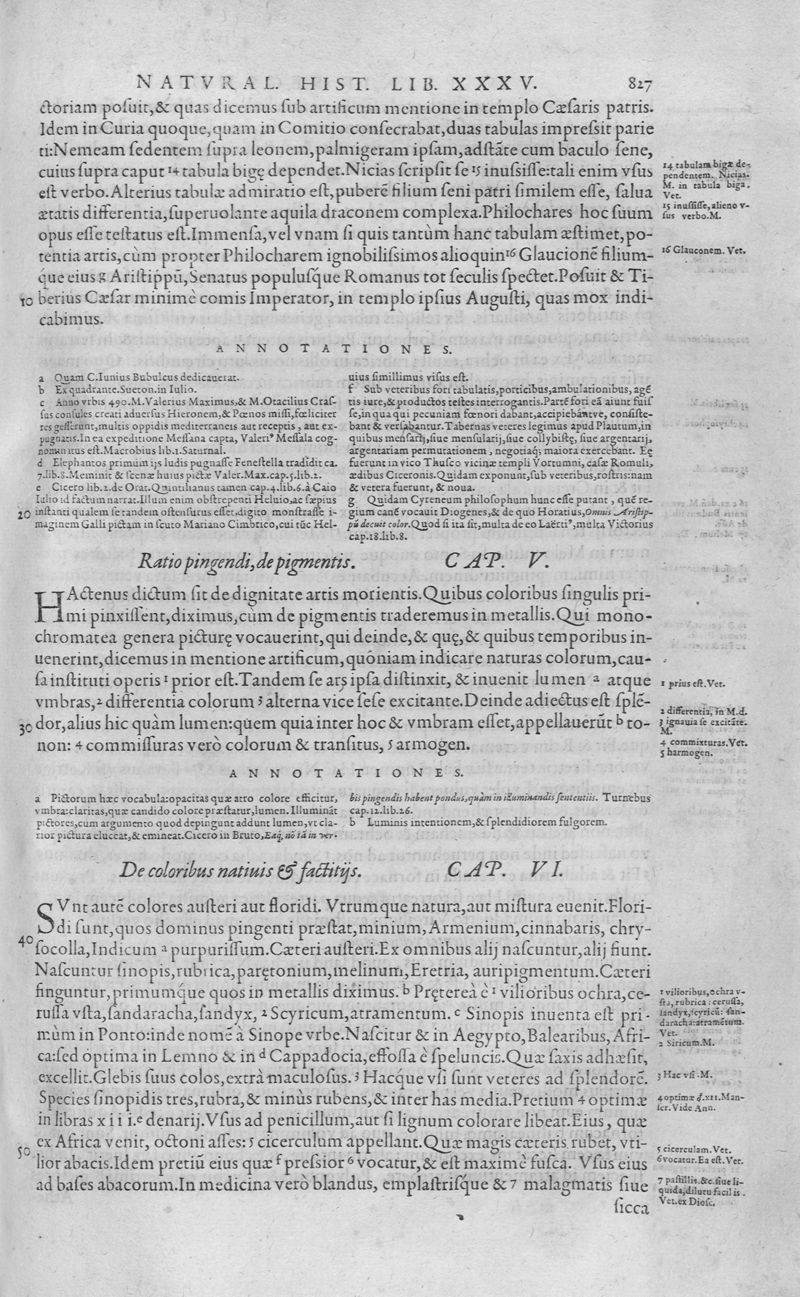 NATVRAL. HIST. LIB. XXXV. 827
ctoriam posuit,& quas dicemus sub artificum mentione in templo Cæsaris patris.
Idem in Curia quoque,quam in Comitio consecrabat,duas tabulas impressit parie
ti:Nemeam sedentem supra leonem,palmigeram ipsam,adstāte cum baculo sene,
cuius supra caput 14 tabula bigę dependet.Nicias scripsit se 15 inussisse:tali enim vsus
est verbo.Alterius tabulæ admiratio est,puberē filium seni patri similem esse, salua
ætatis differentia,superuolante aquila draconem complexa.Philochares hoc suum
opus esse testatus est.Immensa,vel vnam si quis tantùm hanc tabulam æstimet,po-
tentia artis,cùm propter Philocharem ignobilissimos alioquin 16 Glaucionē filium-
que eius g Aristippū,Senatus populusque Romanus tot seculis spectet.Posuit & Ti-
10 berius Cæsar minimè comis Imperator, in templo ipsius Augusti, quas mox indi-
cabimus.
14 tabulam bigæ de-
pendentem. Nicias.
M. in tabula biga.
Vet.
15 inussisse,alieno v-
sus verbo.M.
16 Glauconem. Vet.
ANNOTATIONES.
a Quam C.Iunius Bubulcus dedicauerat.
b Ex quadrante.Sueton.in Iulio.
c Anno vrbis 490.M.Valerius Maximus,& M.Otacilius Cras-
sus consules creati aduersus Hieronem,& Pœnos missi,fœliciter
res gesserunt,multis oppidis mediterraneis aut receptis, aut ex-
pugnatis.In ea expeditione Messana capta, Valeri9 Messala cog-
nominatus est.Macrobius lib.1.Saturnal.
d Elephantos primum ijs ludis pugnasse Fenestella tradidit ca.
7.lib.8.Meminit & scenæ huius pictæ Valer.Max.cap.5.lib.2.
e Cicero lib.2.de Orat.Quintilianus tamen cap.4.lib.6.à Caio
Iulio id factum narrat.Illum enim obstrepenti Heluio,ac sæpius
20 instanti qualem se tandem ostensurus esset,digito monstrasse i-
maginem Galli pictam in scuto Mariano Cimbrico,cui tūc Hel-
uius simillimus visus est.
f Sub veteribus fori tabulatis,porticibus,ambulationibus, agē
tis iure,& productos testes interrogantis.Partē fori eā aiunt fuis
se,in qua qui pecuniam fœnori dabant,accipiebántve, consiste-
bant & versabantur.Tabernas veteres legimus apud Plautum,in
quibus mensarij,siue mensularij,siue collybistę, siue argentarij,
argentariam permutationem, negotiaq; maiora exercebant. Eę
fuerunt in vico Thusco vicinæ templi Vortumni, casæ Romuli,
ædibus Ciceronis.Quidam exponunt,sub veteribus,rostris:nam
& vetera fuerunt, & noua.
g Quidam Cyreneum philosophum hunc esse putant, quē re-
gium canē vocauit Diogenes,& de quo Horatius,Omnis Aristip-
pū decuit color.Quod si ita sit,multa de eo Laërti9,multa Victorius
cap.18.lib.8.
Ratio pingendi,de pigmentis. CAP. V.
HActenus dictum sit de dignitate artis morientis.Quibus coloribus singulis pri-
mi pinxissent,diximus,cùm de pigmentis traderemus in metallis.Qui mono-
chromatea genera picturę vocauerint,qui deinde,& quę,& quibus temporibus in-
uenerint,dicemus in mentione artificum,quôniam indicare naturas colorum,cau-
sa instituti operis 1 prior est.Tandem se ars ipsa distinxit, & inuenit lumen a atque
vmbras,2 differentia colorum 3 alterna vice sese excitante.Deinde adiectus est splē-
30 dor,alius hic quàm lumen:quem quia inter hoc & vmbram esset,appellauerūt b to-
non: 4 commissuras verò colorum & transitus, 5 armogen.
1 prius est.Vet.
2 differentia, in M.d.
3 ignauia se excitāte.
M.
4 commixturas.Vet.
5 harmogen.
ANNOTATIONES.
a Pictorum hæc vocabula:opacitas quæ atro colore efficitur,
vmbra:claritas,quæ candido colore præstatur,lumen. Illumināt
pictores,cum argumento quod depingunt addunt lumen,vt cla-
rior pictura eluceat,& emineat.Cicero in Bruto,Eaq; nō tā in ver-
bis pingendis habent pondus,quàm in illuminandis sententiis. Turnebus
cap.12.lib.26.
b Luminis intentionem,& splendidiorem fulgorem.
De coloribus natiuis & factitijs. CAP. VI.
SVnt autē colores austeri aut floridi. Vtrumque natura,aut mistura euenit.Flori-
di sunt,quos dominus pingenti præstat,minium, Armenium,cinnabaris, chry-
40 socolla,Indicum a purpurissum.Cæteri austeri.Ex omnibus alij nascuntur,alij fiunt.
Nascuntur sinopis,rubrica,parętonium,melinum,Eretria, auripigmentum.Cæteri
finguntur,primumque quos in metallis diximus. b Pręterea è 1 vilioribus ochra,ce-
russa vsta,sandaracha,sandyx, 2 Scyricum,atramentum. c Sinopis inuenta est pri-
mùm in Ponto:inde nomē à Sinope vrbe.Nascitur & in Aegypto,Balearibus, Afri-
ca:sed optima in Lemno & in d Cappadocia,effossa è speluncis.Quæ saxis adhæsit,
excellit.Glebis suus colos,extrà maculosus. 3 Hacque vsi sunt veteres ad splendorē.
Species sinopidis tres,rubra,& minùs rubens,& inter has media.Pretium 4 optimæ
in libras xiii.e denarij.Vsus ad penicillum,aut si lignum colorare libeat.Eius, quæ
50 ex Africa venit, octoni asses: 5 cicerculum appellant.Quæ magis cæteris rubet, vti-
lior abacis.Idem pretiū eius quæ f pressior 6 vocatur,& est maximè fusca. Vsus eius
ad bases abacorum.In medicina verò blandus, emplastrisque & 7 malagmatis siue
sicca
1 vilioribus,ochra v-
sta, rubrica: cerussa,
sandyx,scyricū: san-
daracha:atramētum.
Vet.
2 Siricum.M.
3 Hac vsi.M.
4 optimæ d.xii.Man-
ser.Vide Ann.
5 cicerculam.Vet.
6 vocatur.Ea est.Vet.
7 pastillis.&c.siue li-
quida,dilutu facilis.
Vet.ex Diosc.